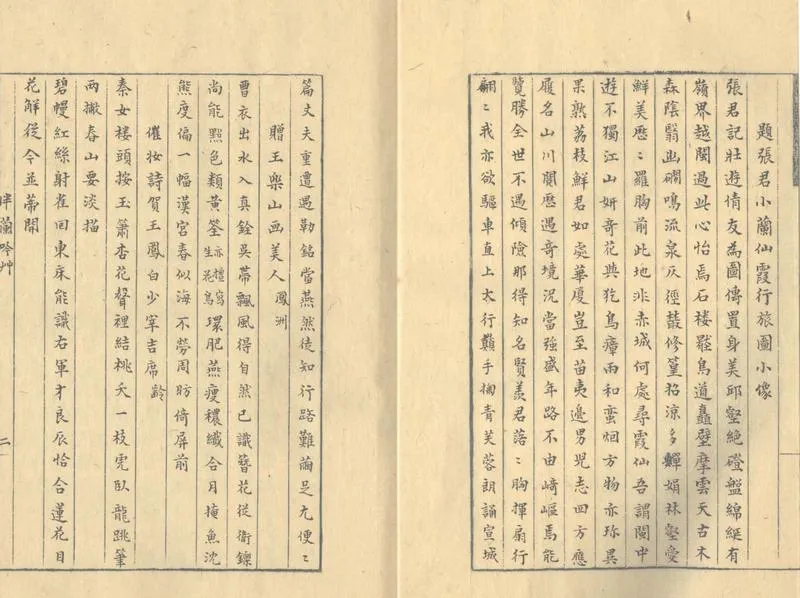 題張君小蘭仙霞行旅圖小像
張君記壯遊情友為圖傳置身美邱壑絕磴盤綿綖有
嶺界越閩過此心怡焉石楼羆鳥道矗壁摩雲天古木
森陰翳幽磵鳴流泉仄徑蓺修篁招涼多嬋娟林壑愛
鮮美歷〻羅胸前此地非赤城何處尋霞仙吾謂閩中
遊不獨江山妍奇花與犵鳥瘴雨和蛮烟方物亦珎異
果熟荔枝鮮君如處華厦豈至苗夷邊男兒志四方應
履名山川閱歷過奇境況當強盛年路不由﨑嶇焉能
覽勝全世不遇傾險那得知名賢羨君落〻胸揮扇行
翩〻我亦欲驅車直上太行巔手掬青芙蓉朗誦宣城
篇丈夫重遭遇勒銘當燕然徒知行路難繭足尤便〻
贈王樂山画美人 鳳洲
曹衣出水入真銓吳蒂飄風得自然已識簪花從衛鑠
尚能點色類黃筌亦擅寫生花鳥環肥燕瘦穠纖合月掩魚沈
熊度偏一幅漢宮春似海不勞周昉倚屏前
催妝詩賀王鳳白少宰吉席 齡
秦女楼頭按玉簫杏花聲裡結桃夭一枝兎臥龍跳筆
兩撇春山要淡描
碧幔紅絲射雀回東床能識右軍才良辰恰合蓮花目
花解從今並蒂開
吟艸
二